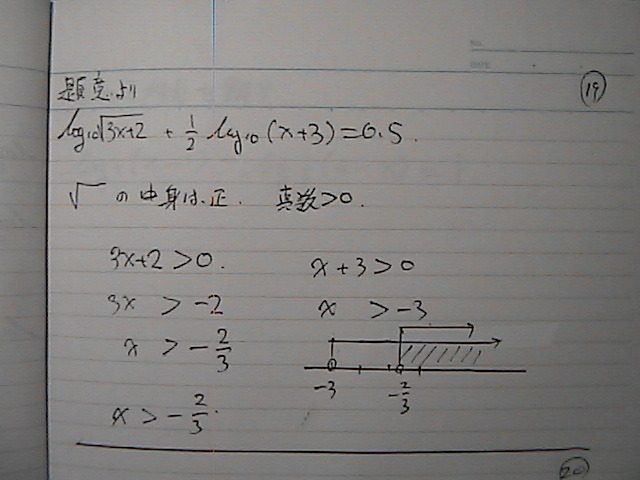 NO.
DATE
⑲
題意より
log₁₀√3x+2 + 1/2 log₁₀(x+3)=0.5.
√ の中身は、正. 真数>0.
3x+2>0. x+3>0
3x > -2 x > -3
x > -2/3
-3 -2/3
x > -2/3.
⑳